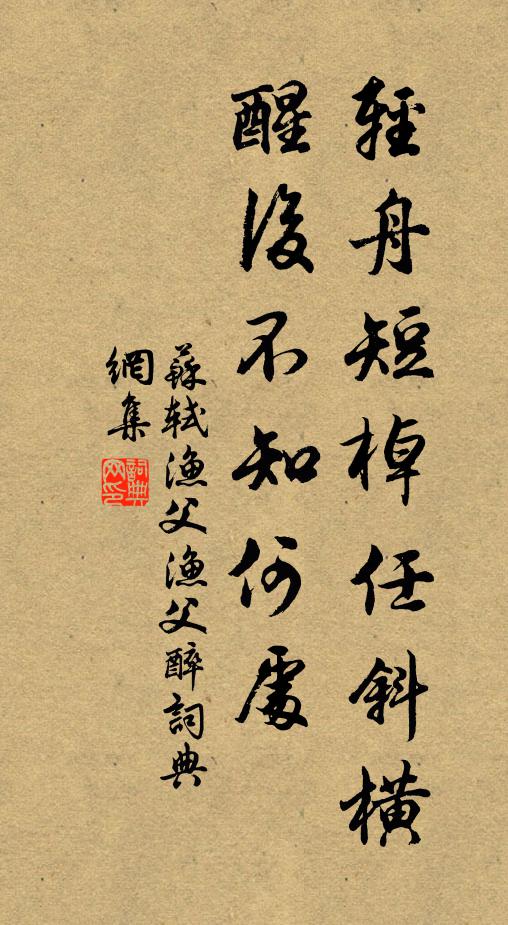 輕舟短棹任斜橫
醒後不知何處
蘇軾漁父漁父醉詞典
網集
詞典
网印